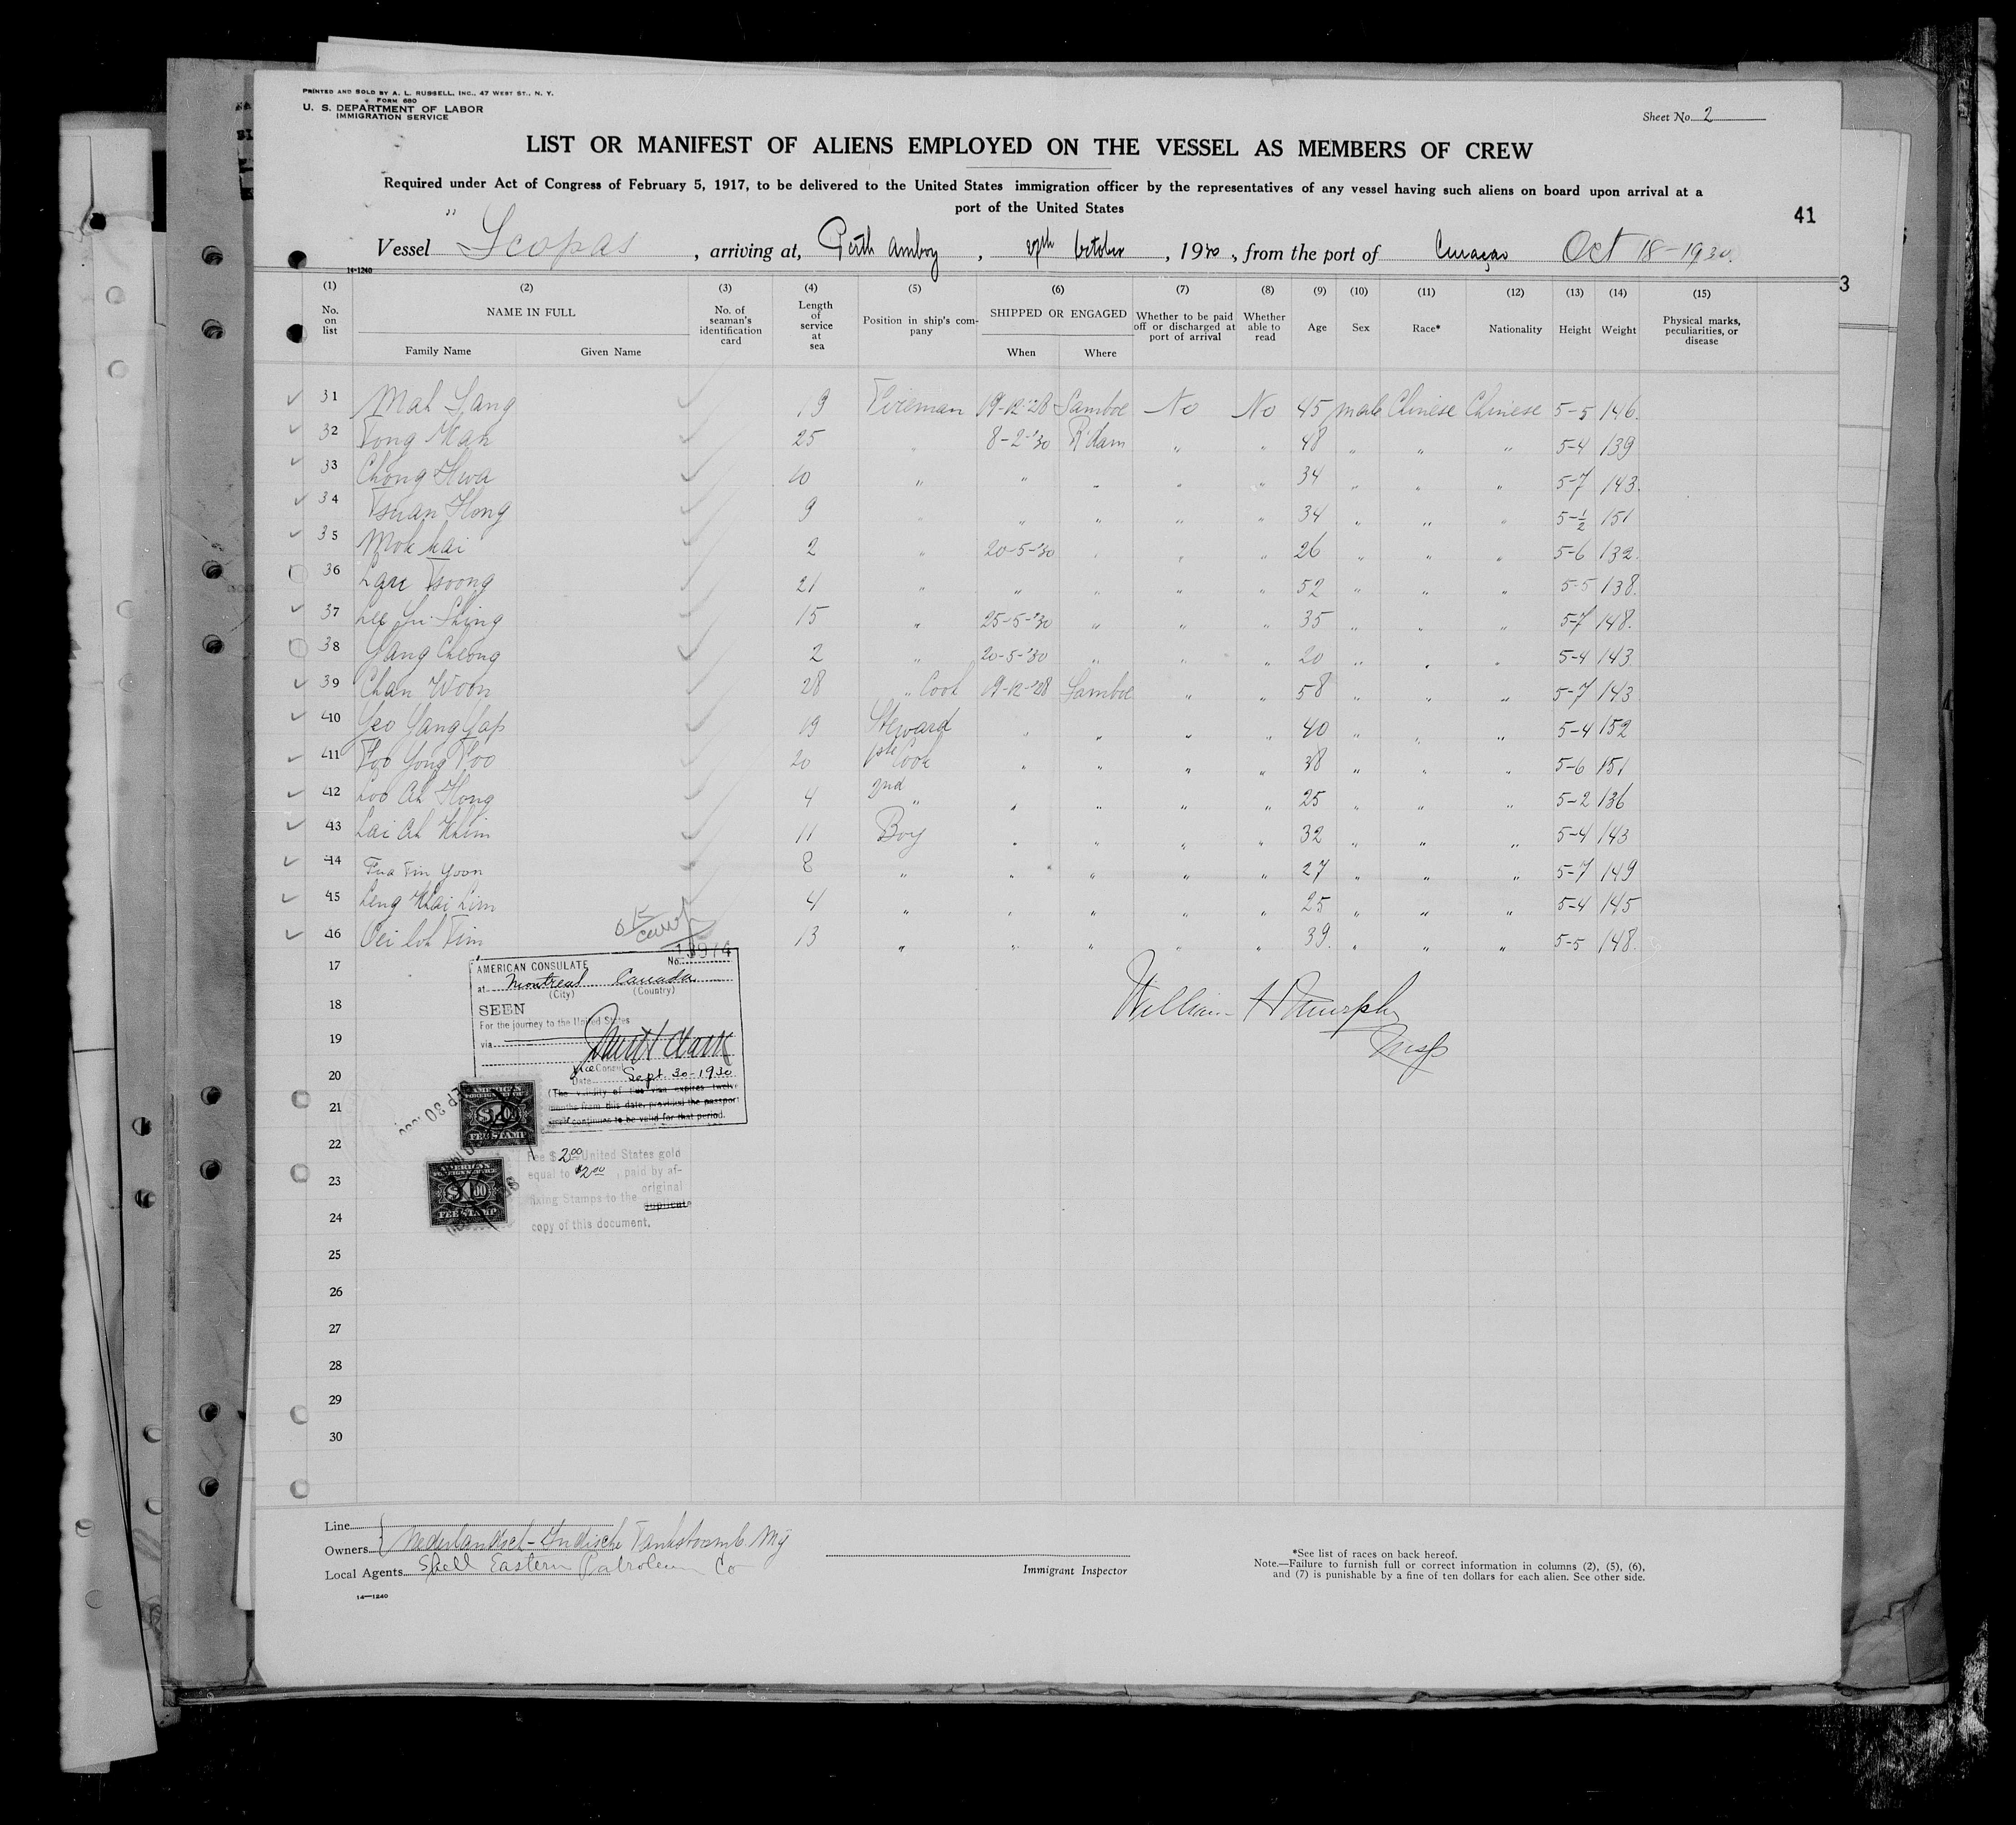 PRINTED AND SOLD BY A. L. RUSSELL, INC., 47 WEST ST., N. Y.
FORM 680
U. S. DEPARTMENT OF LABOR
IMMIGRATION SERVICE
Sheet No. 2
LIST OR MANIFEST OF ALIENS EMPLOYED ON THE VESSEL AS MEMBERS OF CREW
Required under Act of Congress of February 5, 1917, to be delivered to the United States immigration officer by the representatives of any vessel having such aliens on board upon arrival at a
port of the United States
41
Vessel " Scopas , arriving at, Perth Amboy , October , 1930 , from the port of Curaçao Oct 18-1930.
14-1240
3
(1) (2) (3) (4) (5) (6) (7) (8) (9) (10) (11) (12) (13) (14) (15)
No. on list NAME IN FULL Family Name Given Name No. of seaman's identification card Length of service at sea Position in ship's company SHIPPED OR ENGAGED When Where Whether to be paid off or discharged at port of arrival Whether able to read Age Sex Race* Nationality Height Weight Physical marks, peculiarities, or disease
31 Mah Sang 19 Fireman 19-12-'28 Samboe No No 45 male Chinese Chinese 5-5 146.
32 Tong Kan 25 " 8-2-'30 R'dam " " 48 " " " 5-4 139
33 Chong Hwa 10 " " " " " 34 " " " 5-7 143.
34 Tsuan Hong 9 " " " " " 34 " " " 5-½ 151
35 Mok Kai 2 " 20-5-'30 " " " 26 " " " 5-6 132.
36 Lau Tsoong 21 " " " " " 52 " " " 5-5 138.
37 Lee Yu Shing 15 " 25-5-'30 " " " 35 " " " 5-7 148.
38 Yang Cheong 2 " 20-5-'30 " " " 20 " " " 5-4 143
39 Chan Woon 28 " Cook 19-12-'28 Samboe " " 58 " " " 5-7 143
40 Yeo Yang Yap 19 Steward " " " " 40 " " " 5-4 152
41 Foo Yong Foo 20 1ste Cook " " " " 38 " " " 5-6 151
42 Loo Ah Hong 4 2nd " " " " " 25 " " " 5-2 136
43 Lai Ah Khim 11 Boy " " " " 32 " " " 5-4 143
44 Fua Tin Yoon 8 " " " " " 27 " " " 5-7 149
45 Leng Khai Lim 4 " " " " " 25 " " " 5-4 145
46 Oei Loh Tim 13 " " " " " 39. " " " 5-5 148.
17
18
19
20
21
22
23
24
25
26
27
28
29
30
AMERICAN CONSULATE No. 13974
at Montreal Canada
(City) (Country)
SEEN
For the journey to the United States
via
Vice Consul
Date Sept. 30-1930
(The validity of this visa expires twelve
months from this date, provided the passport
itself continues to be valid for that period.
SEP 30 1930
AMERICAN FOREIGN SERVICE $1.00 FEE STAMP
AMERICAN FOREIGN SERVICE $1.00 FEE STAMP
Fee $ 2.00 United States gold
equal to $2.00, paid by af-
original
fixing Stamps to the duplicate
copy of this document.
William H Murphy
Insp
Line
Owners { Nederlandsch-Indische Tankstoomb. Mij
Local Agents Shell Eastern Petroleum Co
Immigrant Inspector
*See list of races on back hereof.
Note.—Failure to furnish full or correct information in columns (2), (5), (6),
and (7) is punishable by a fine of ten dollars for each alien. See other side.
14—1240